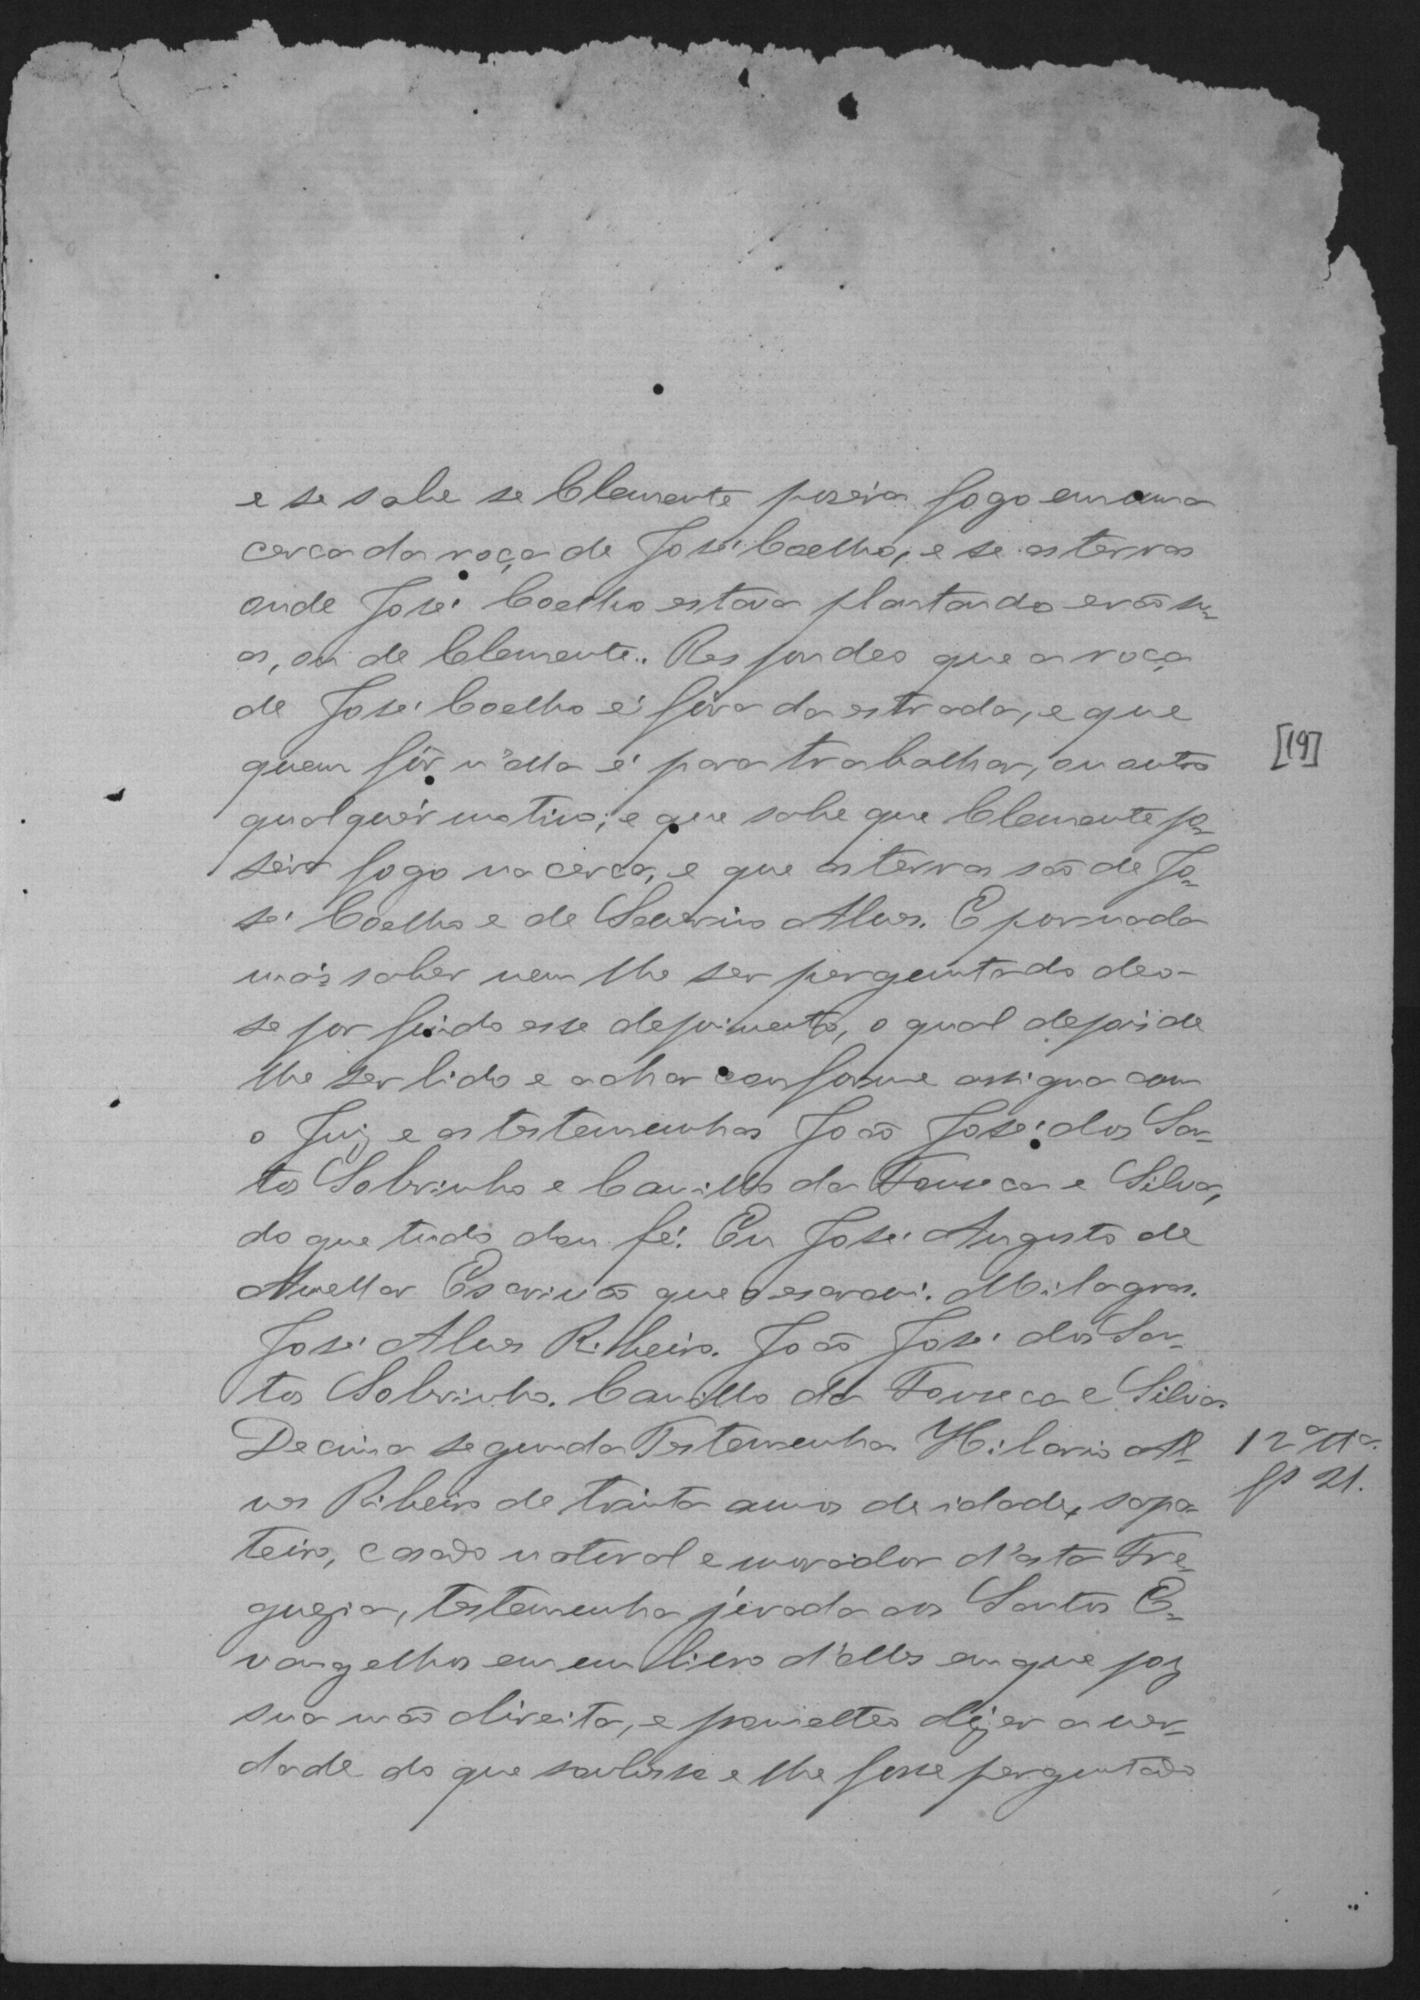 e se sabe se Clemente pozéra fogo em uma
cerca da roça de José Coelho, e se as terras
onde José Coelho estava plantando erão su-
as, ou de Clemente. Respondeo que a roça
de José Coelho é fóra da estrada, e que
quem fôr n'ella é para trabalhar, ou outro
[19]
qualquér motivo; e que sabe que Clemente po-
séra fogo na cerca, e que as terras são de Jo-
sé Coelho e de Severino Alves. E por nada
máis saber nem lhe ser perguntado deo-
se por findo esse depoimento, o qual depois de
lhe ser lido e achar conforme assigna com
o Juiz e as testemunhas João José dos San-
tos Sobrinho e Camillo da Fonseca e Silva,
do que tudo dou fé. Eu José Augusto de
Avellar Escrivão que o escrevi. Milagres.
José Alves Ribeiro. João José dos San-
tos Sobrinho. Camillo da Fonseca e Silva.
Decima segunda Testemunha Hilario Al-
12ª Ttª.
ves Ribeiro de trinta annos de idade, sapa-
fs 21.
teiro, casado natural e morador d'esta Fre-
guezia, testemunha jurada aos Santos E-
vangelhos em um livro d'elles em que poz
sua mão direita, e prometteo dizer a ver-
dade do que soubesse e lhe fosse perguntado